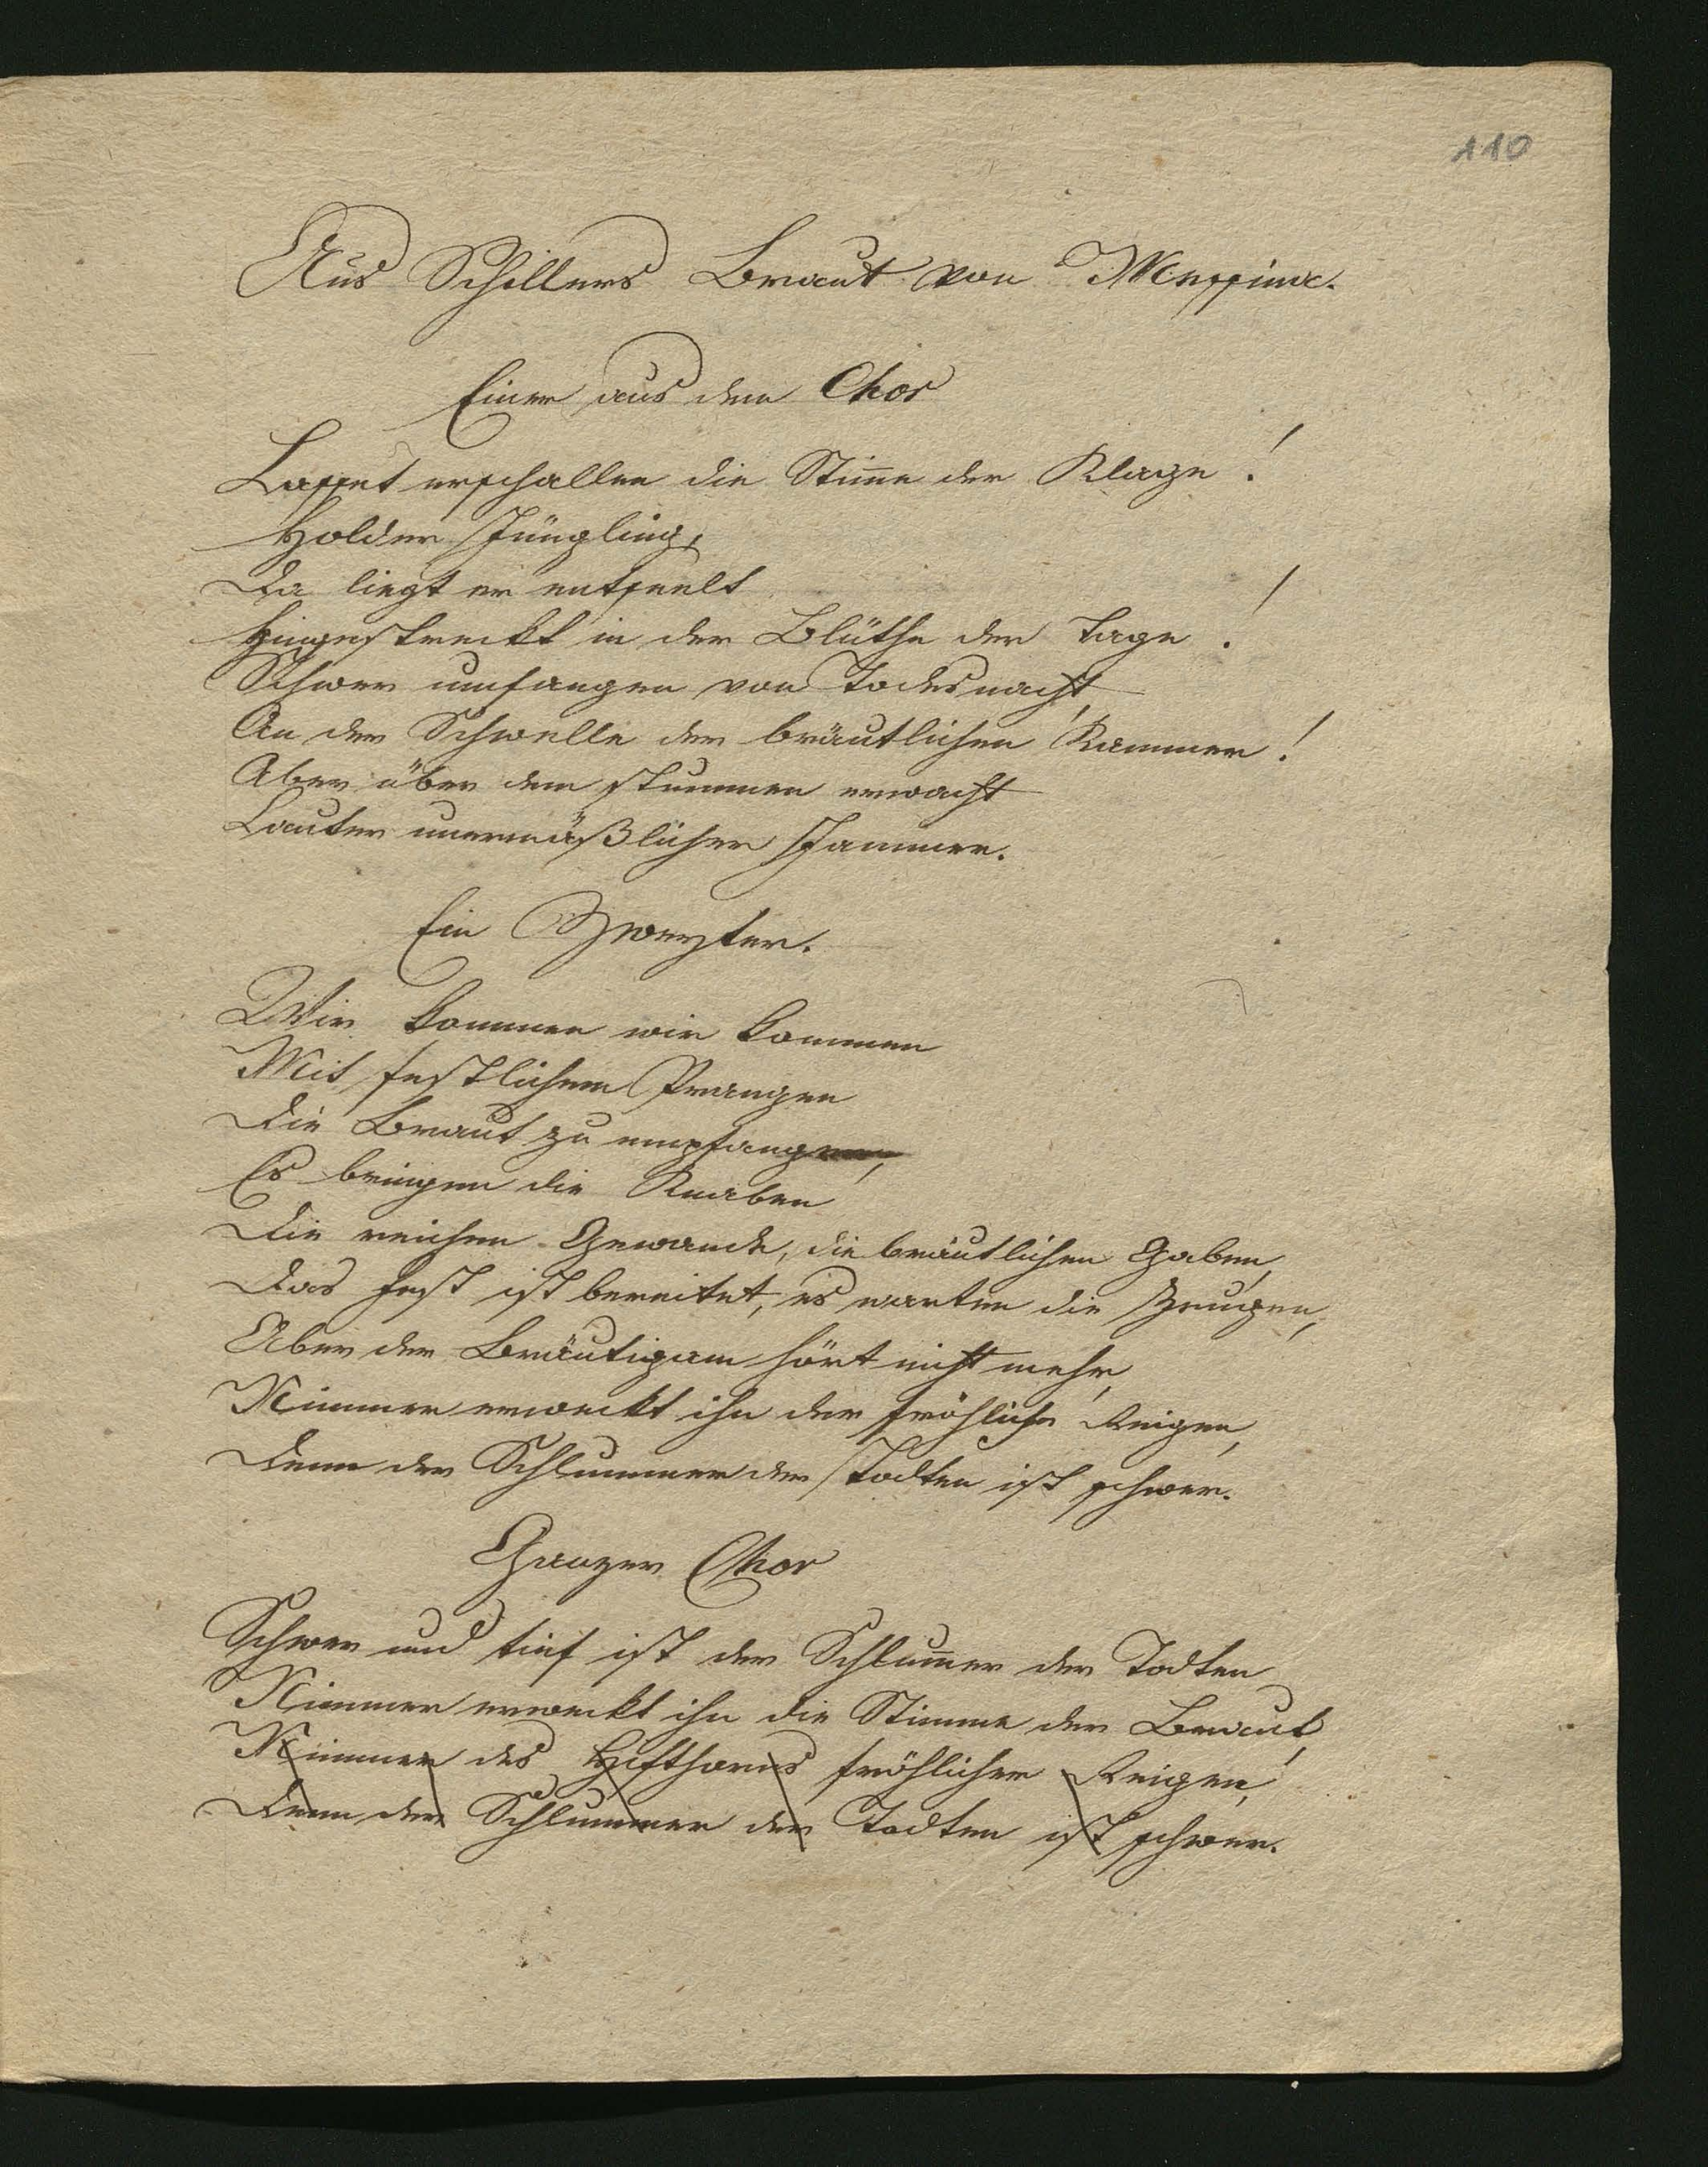 110
Aus Schillers Braut von Messina.
Einer aus dem Chor
Lasset erschallen die Stim̄e der Klage!
Holder Jüngling,
Da liegt er entseelt
Hingestreckt in der Blüthe der Tage!
Schwer umfangen von Todesnacht,
An der Schwelle der bräutlichen Kammer!
Aber über dem stummen erwacht
Lauter unermäßlicher Jammer.
Ein Zweyter.
Wir kommen wir kommen
Mit festlichem Prangen
Die Braut zu empfangen,
Es bringen die Knaben
Die reichen Gewande, die bräutlichen Gaben,
Das Fest ist bereitet, es warten die Zeugen,
Aber der Bräutigam hört nicht mehr,
Nimmer erweckt ihn der fröhliche Reigen,
Denn der Schlummer der Todten ist schwer.
Ganzer Chor
Schwer und tief ist der Schlum̄er der Todten
Nimmer erweckt ihn die Stimme der Braut,
Nimmer des Hifthorns fröhlicher Reigen,
Denn der Schlummer der Todten ist schwer.